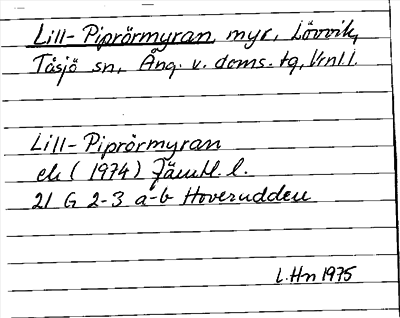 Lill-Piprörmyran, myr, Lövvik,
Tåsjö sn, Ång. v. doms. tg, Vrnl l.
Lill-Piprörmyran
ek (1974) Jämtl. l.
21 G 2-3 a-b Hoverudden
L.Hn 1975